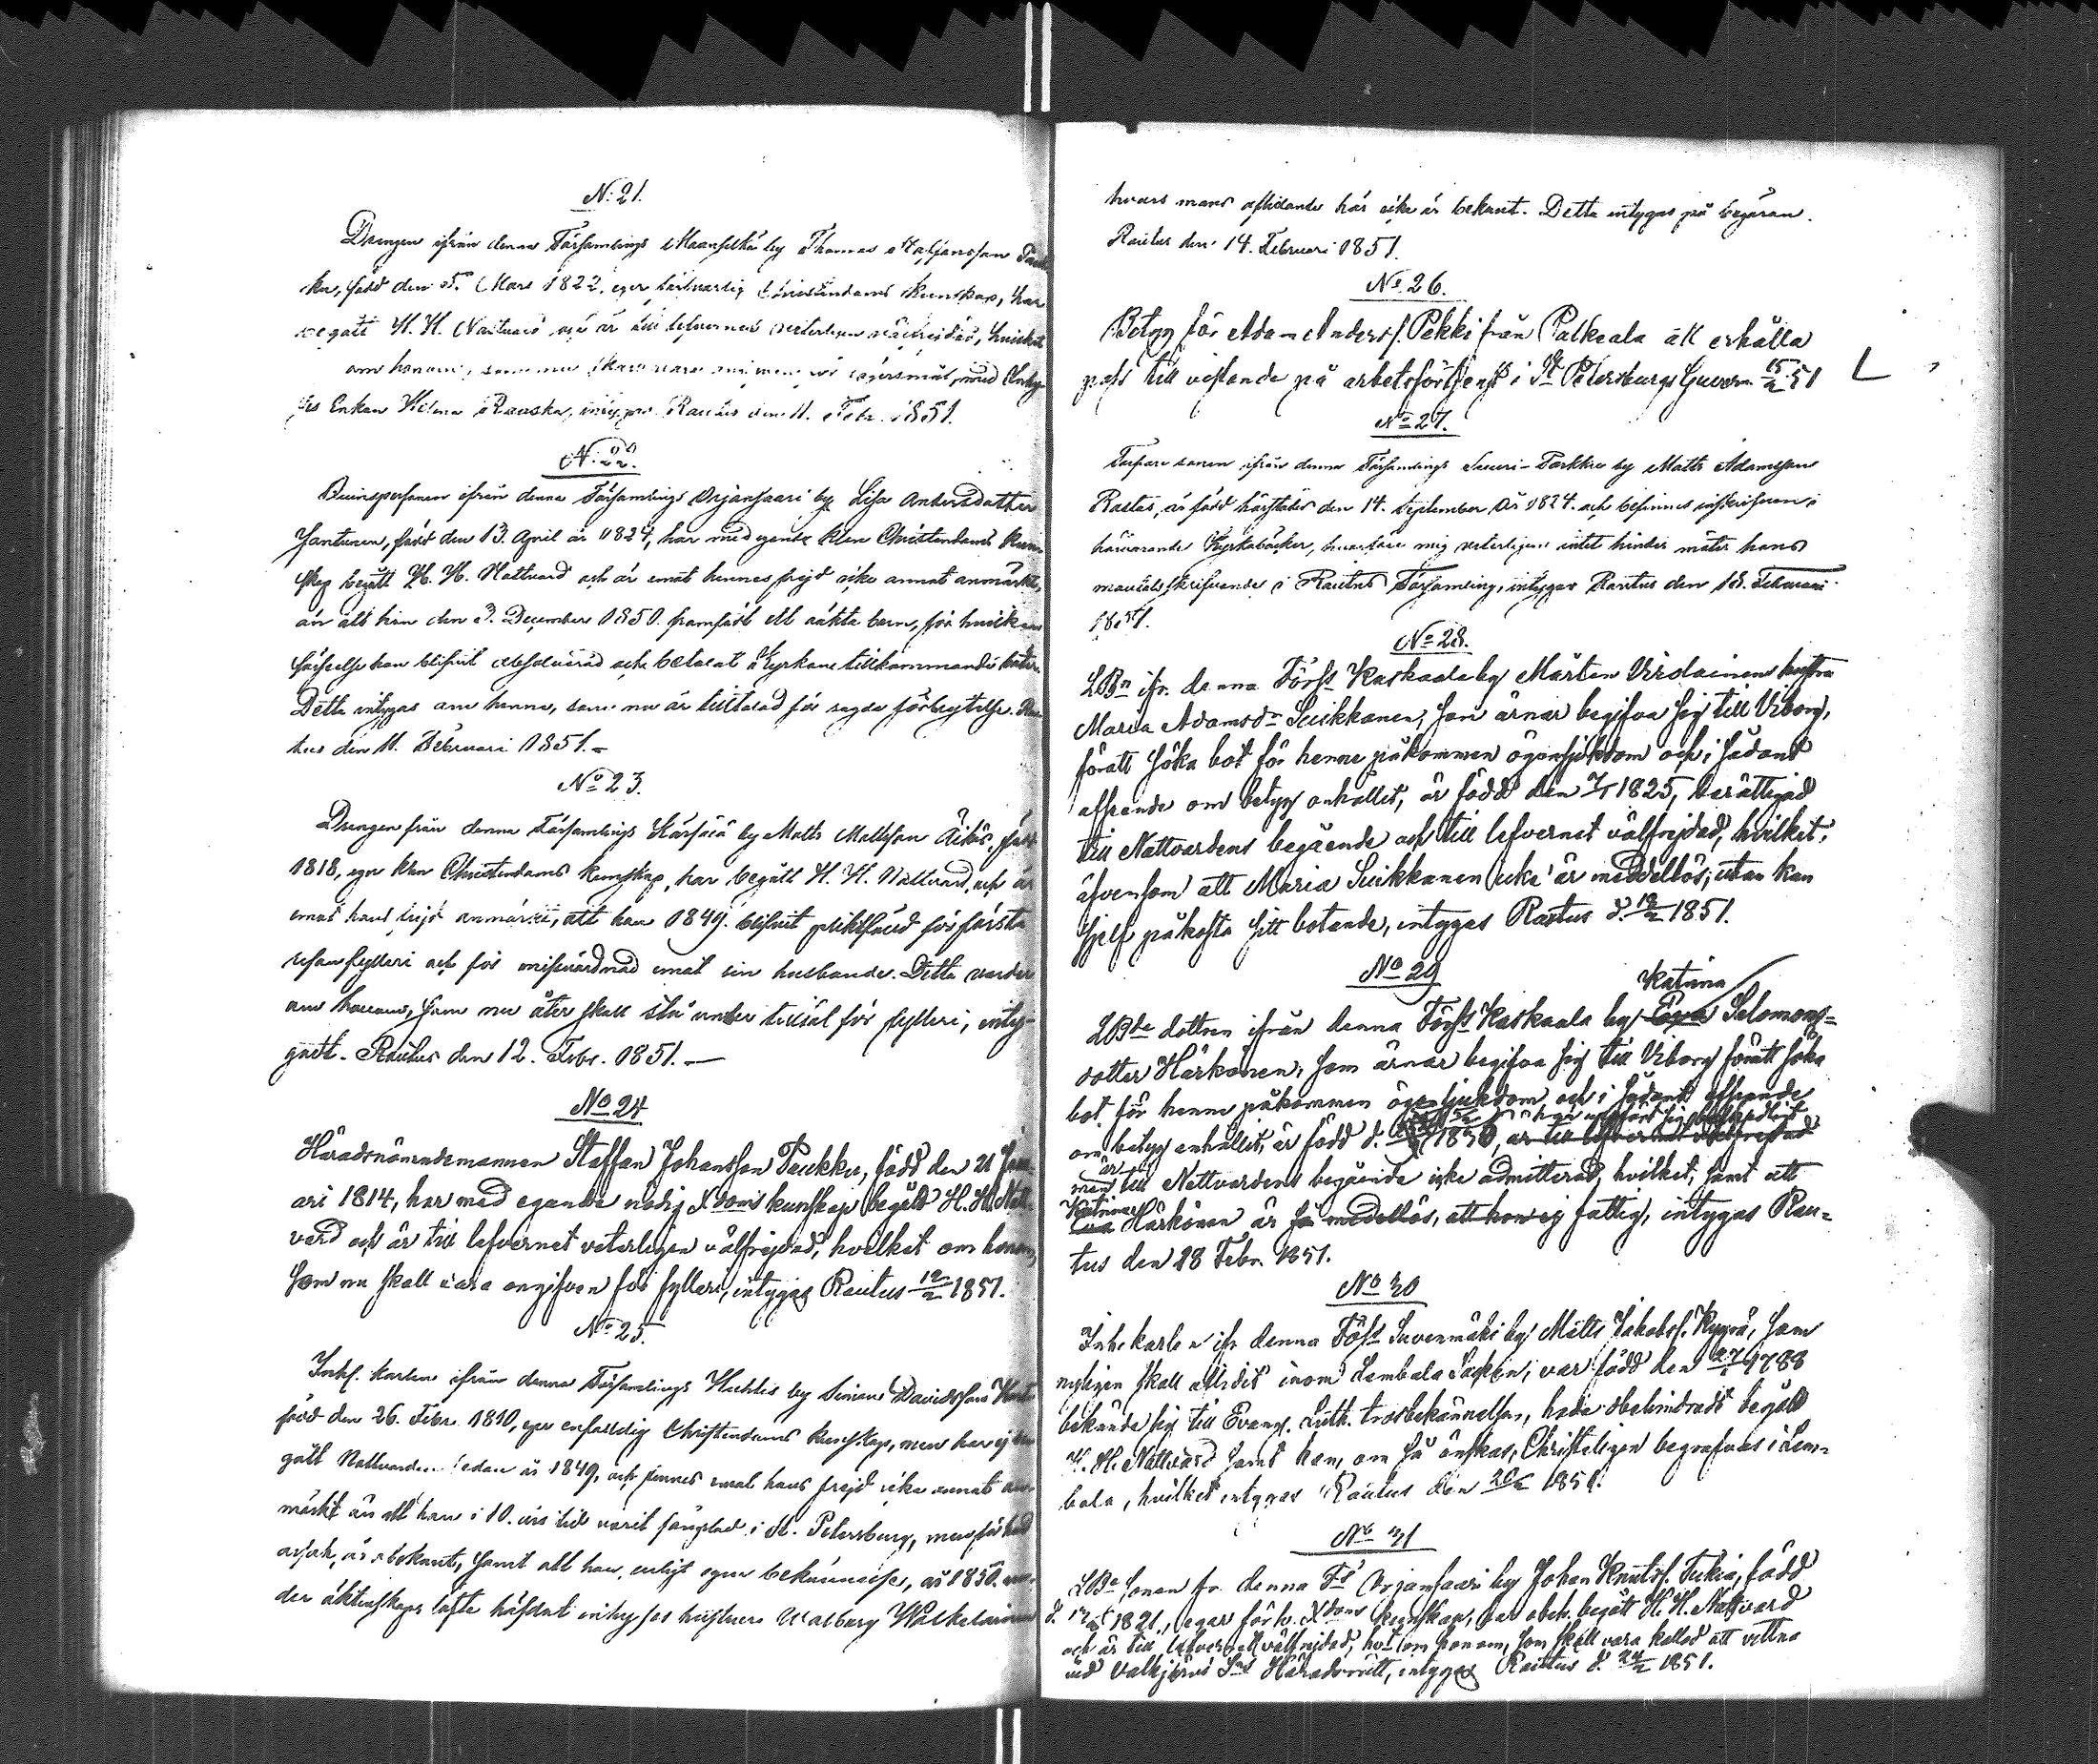 N: 21.
Drengen ifrån denna Församlings Maanselkä by Thomas Staffansson
ka, född den 5. Mars 1822, eger Christendoms kunskap, har
begått H. H. Nattvard och är till lefvernet veterligen välfrejdad, hvilket
om honom, som nu skall vara med Inhy-
ses Enkan Helena Rauska, intygas. Rautus den 11. Febr. 1851.
N: 22.
ifrån denna Församlings Orjansaari by Lisa Andersdotter
Hantunen, född den 13. April år 1824, har med egande klen Christendoms kun-
skap begått H. H. Nattvard och är emot hennes frejd icke annat anmärkt,
än att hon den 3. December 1850. framfödt ett oäkta barn, för hvilken
förseelse hon blifvit absolverad och betalat Kyrkans tillkommande böter.
Detta intygas om henne, som nu är tilltalad för sagde förbrytelse. Rau-
tus den 11. Februari 1851. –
No 23.
Drengen från denna Församlings by Matts Mattsson Äikäs, född
1818, eger klen Christendoms kunskap, har begått H. H. Nattvard, och är
emot hans frejd anmärkt, att han 1849. blifvit pliktfälld för första
resan fylleri och för missvårdnad emot sin husbonde. Detta varder
om honom, som nu åter skall stå under tilltal för fylleri, intyg-
gadt. Rautus den 12. Febr. 1851. —
No 24
Häradsnämndemannen Staffan Johansson Paukku, född den 21 Janu-
ari 1814, har med egande nödig Xdoms kunskap begått H. H. Natt-
vard och är till lefvernet veterligen välfrejdad, hvilket om honom,
som nu skall vara angifven för fylleri, intygas Rautus 12/2 1851.
No 25.
Inhs. karlen ifrån denna Församlings by Simon Davidsson
född den 26. Febr. 1810, eger enfaldig Christendoms kunskap, men har ej be-
gått Nattvarden sedan år 1849, och finnes emot hans frejd icke annat an-
märkt än att han i 10. års tid varit fängslad i St. Petersburg, men för hvad
orsak, är obekant, samt att han, enligt egen bekännelse, år 1850. un-
der äktenskaps löfte häfdat inhyses hustrun Walborg
hvars mans aflidande här icke är bekant. Detta intygas på begäran.
Rautus den 14. Februari 1851.
No 26.
Betyg för Adam Anders s. Pekki från Palkeala att erhålla
pass till vistande på arbetsförtjenst i St Petersburgs Guvern. 15/2 51
No 27.
sonen ifrån denna Församlings by Matts Adamsson
Rastas, är född härstädes den 14. September år 1824. och befinnes inskrifven i
härvarande Kyrkoböcker, hvarföre mig veterligen intet hinder möter hans
mantalsskrifvande i Rautus Församling, intygas Rautus den 18. Februari
1851.
No 28.
LBn ifr. denna Förss Kaskaala by Mårten Virolainens hustru
Maria Adamsdr Suikkanen, som ärnar begifva sig till Viborg,
föratt söka bot för henne påkommen ögonsjukdom och i sådant
afseende om betyg anhållit, är född den 7/7 1825, berättigad
till Nattvardens begående och till lefvernet välfrejdad, hvilket,
äfvensom att Maria Suikkanen icke är medellös, utan kan
sjelf påkosta sitt botande, intygas Rautus d. 19/2 1851.
No 29
Katrina
LBde dottren ifrån denna Förss Kaskaala by Salomons-
dotter Härkönen, som ärnar begifva sig till Viborg föratt söka
bot för henne påkommen ögonsjukdom och i sådant afseende
om betyg anhållit, är född d. 18, är till lefvernet välfrejdad
är
men till Nattvardens begående icke admitterad, hvilket, samt att
Katrina
Härkönen är så medellös, att hon ej fattig, intygas Rau-
tus den 28 Febr. 1851.
No 30
Inhs karlen ifr denna Förss Suvenmäki by Matts Jakobs s. Kyyrä, som
nyligen skall aflidit inom Lembala Socken, var född den 1788
bekände sig till Evang. Luth. trosbekännelsen, hade obehindradt begått
H. H. Nattvard samt kan, om så önskas, Christeligen begrafvas i Lem-
bala, hvilket intygas Rautus den 20/2 1851.
No 31
LBe sonen fr. denna Fs Orjansaari by Johan Knuts s. Tukia, född
d. 1821, egar förb. Xdoms kunskap, har obeh. begått H. H. Nattvard
och är till lefvernet välfrejdad, hvt om honom, som skall vara kallad att vittna
vid Valkjärvi Sns Häradsrätt, intygas Rautus d. 24/2 1851.